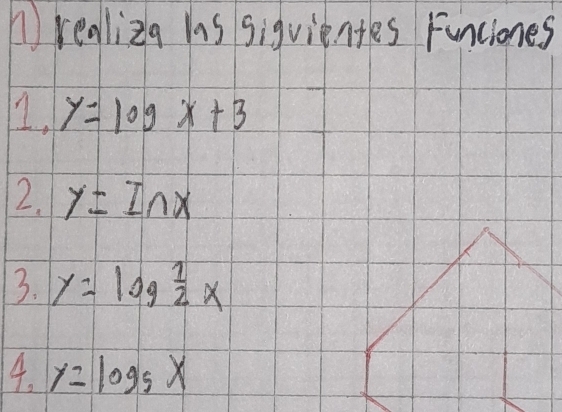 1) realiza las siguientes Funciones
1. y = log x + 3
2. y = In x
3. y = log 1/2 x
4. y = log₅ x